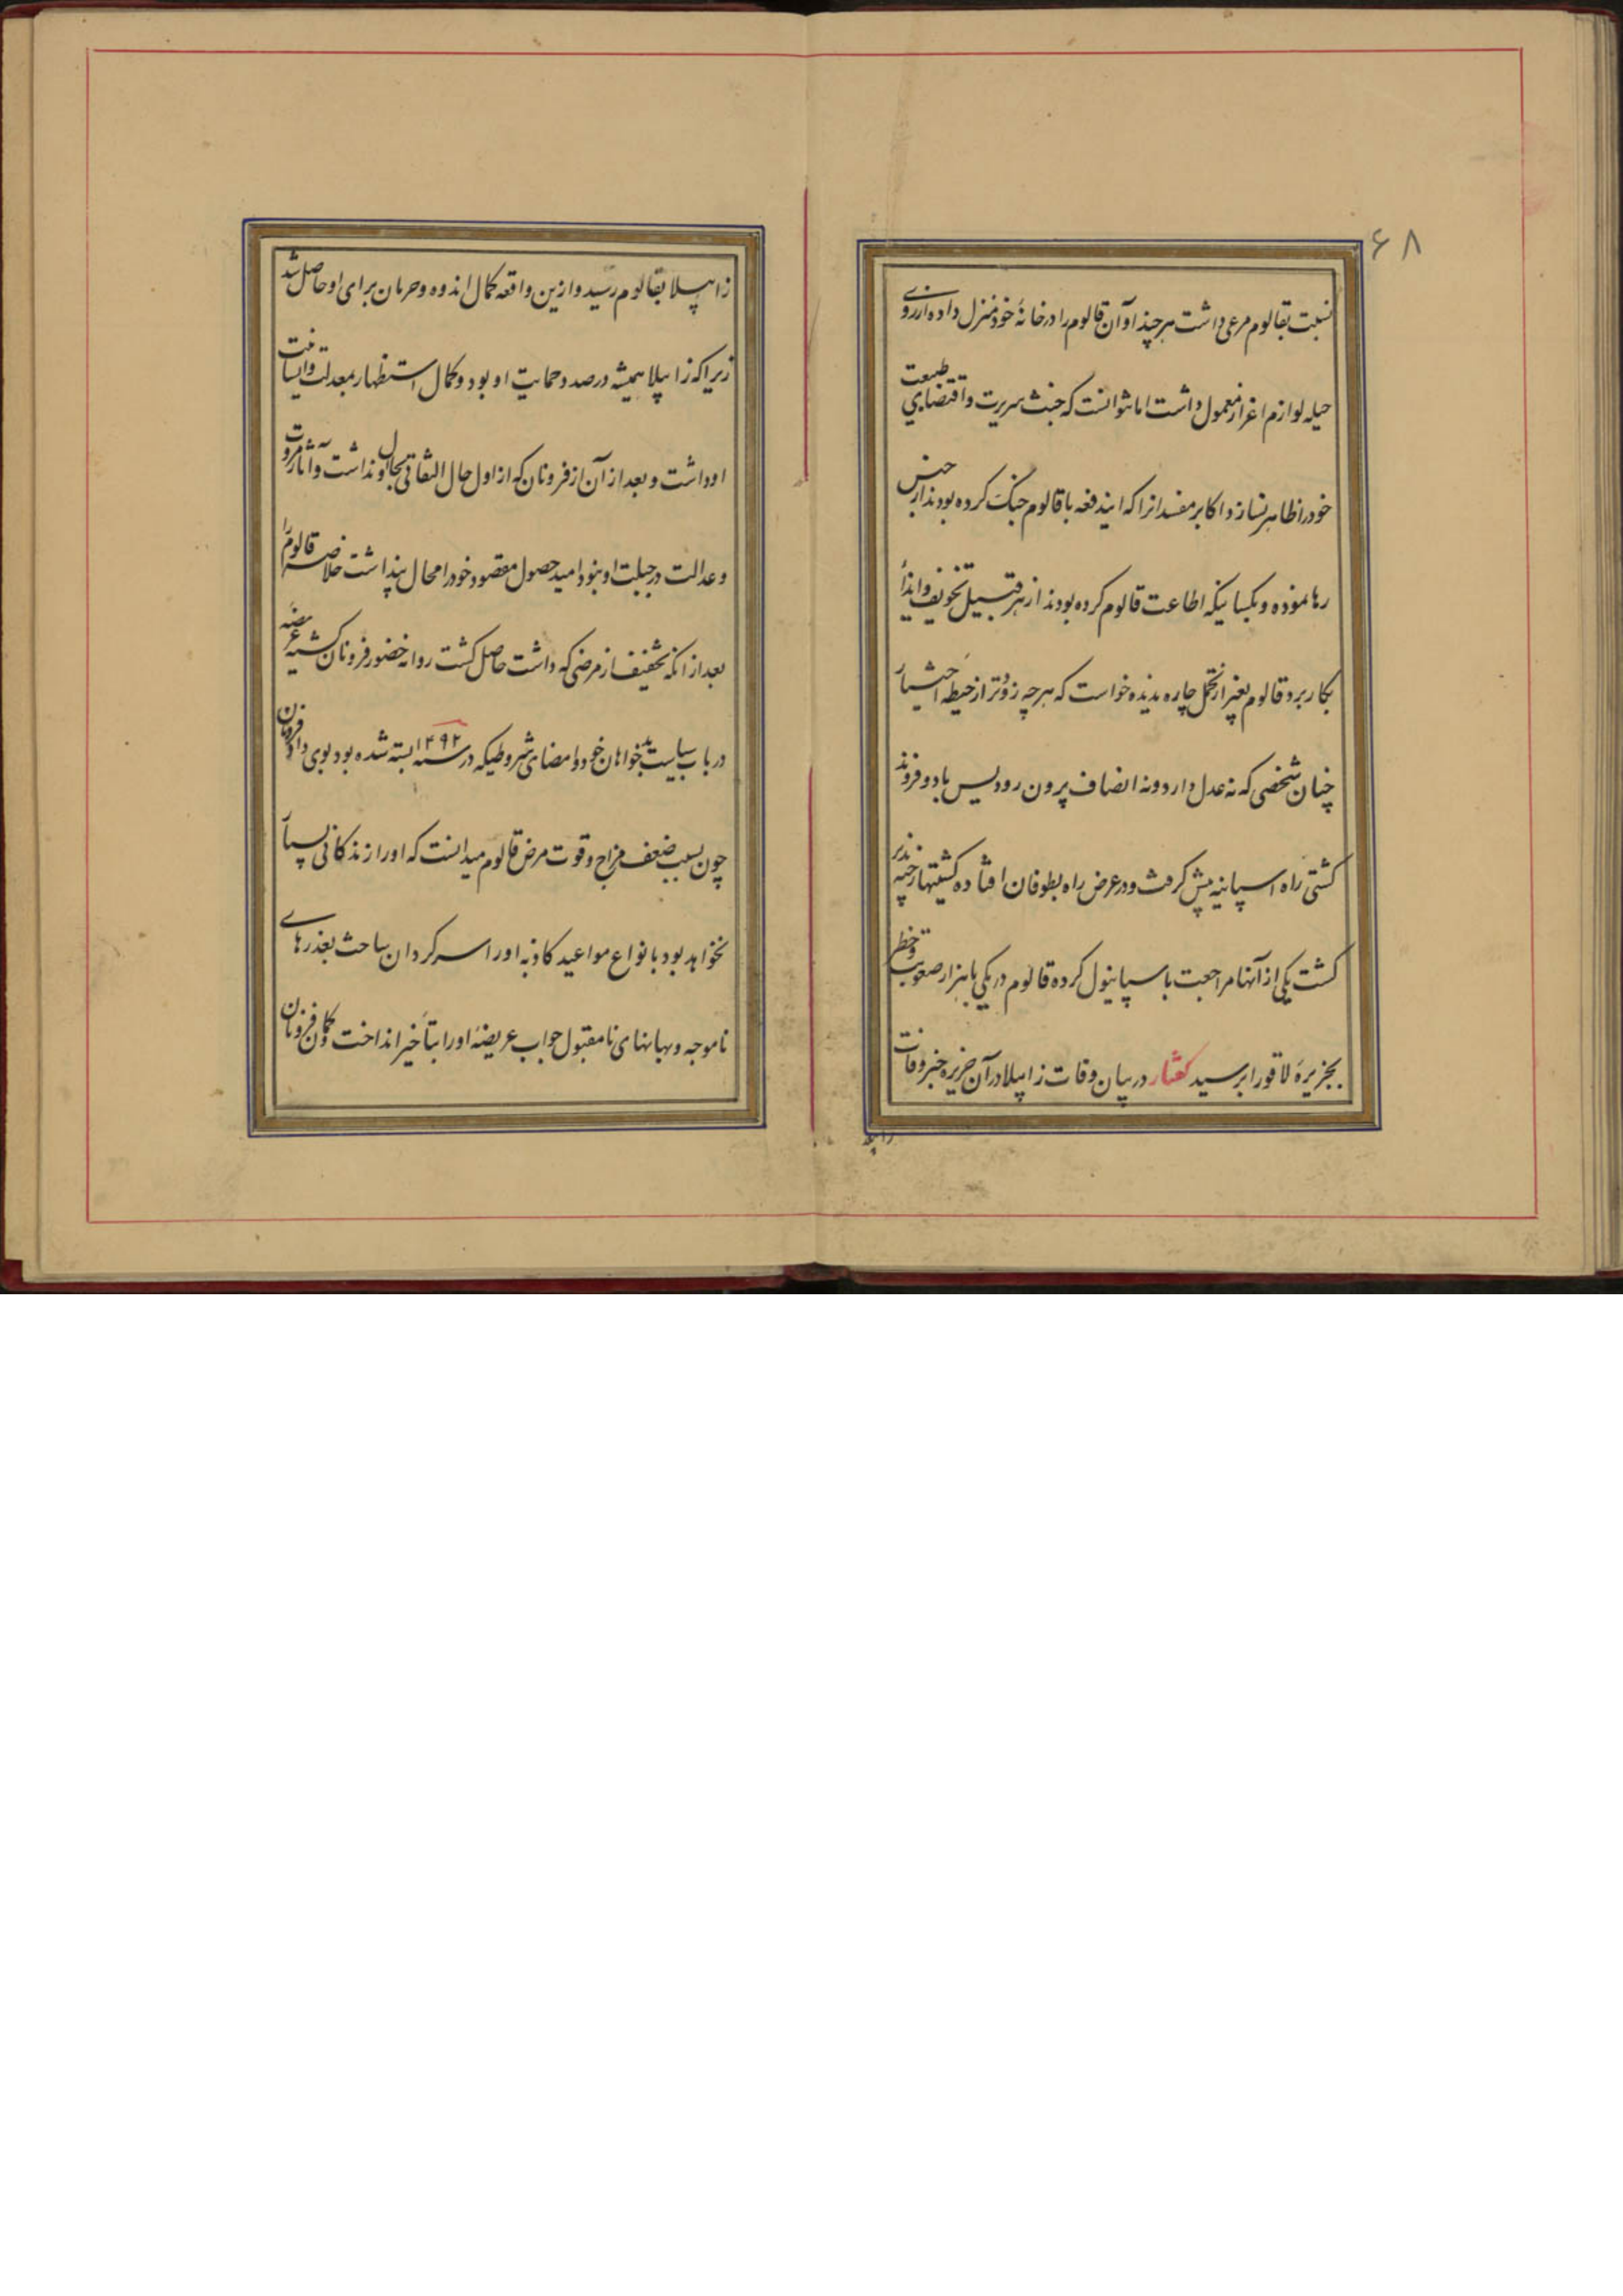 ۶۸
نسبت بقالوم مرعی داشت هر چند او آن قالوم را در خانهٔ خود منزل داده از روی
حیله لوازم اعزاز معمول داشت اما نتوانست که خبث سریرت و اقتضای طبیعت
خود را ظاهر نسازد اکابر مفسدانرا که ایندفعه با قالوم جنک کرده بودند از حبس
رها نموده و بکسانیکه اطاعت قالوم کرده بودند از هر قبیل تخویف و ایذا
بکار برد قالوم بغیر از تحمل چاره ندیده خواست که هر چه زودتر از حیطه اختیار
چنان شخصی که نه عدل دارد و نه انصاف بیرون رود پس با دو فروند
کشتی راه اسپانیه پیش کرفت و در عرض راه بطوفان افتاده کشتیها رخنه پذیر
کشت یکی از آنها مراجعت با سپانیول کرده قالوم در یکی با هزار صعوبت و خطر
بجزیرهٔ لاقورا برسید کفتار در بیان وفات زابیلا در آن جزیره خبر وفات
زابیلا
زابیلا بقالوم رسید و ازین واقعه کمال اندوه و حرمان برای او حاصل شد
زیرا که زابیلا همیشه در صدد حمایت او بود و کمال استظهار بمعدلت و انسانیت
او داشت و بعد از آن از فرونان که از اول حال التفاتی بحال او نداشت و آثار مروت
و عدالت در جبلت او نبود امید حصول مقصود خود را محال پنداشت خلاصه قالوم را
بعد از انکه تخفیف از مرضی که داشت حاصل کشت روانه حضور فرونان کشته عریضه
در باب سیاست بدخواهان خود و امضای شروطیکه در سنه ۱۴۹۲ بسته شده بود بوی داد فرونان
چون بسبب ضعف مزاج و قوت مرض قالوم میدانست که او را زندکانی بسیار
نخواهد بود با نواع مواعید کاذبه او را سرکردان ساخت بعذرهای
ناموجه و بهانهای نامقبول جواب عریضهٔ او را بتأخیر انداخت و کمان فرونان